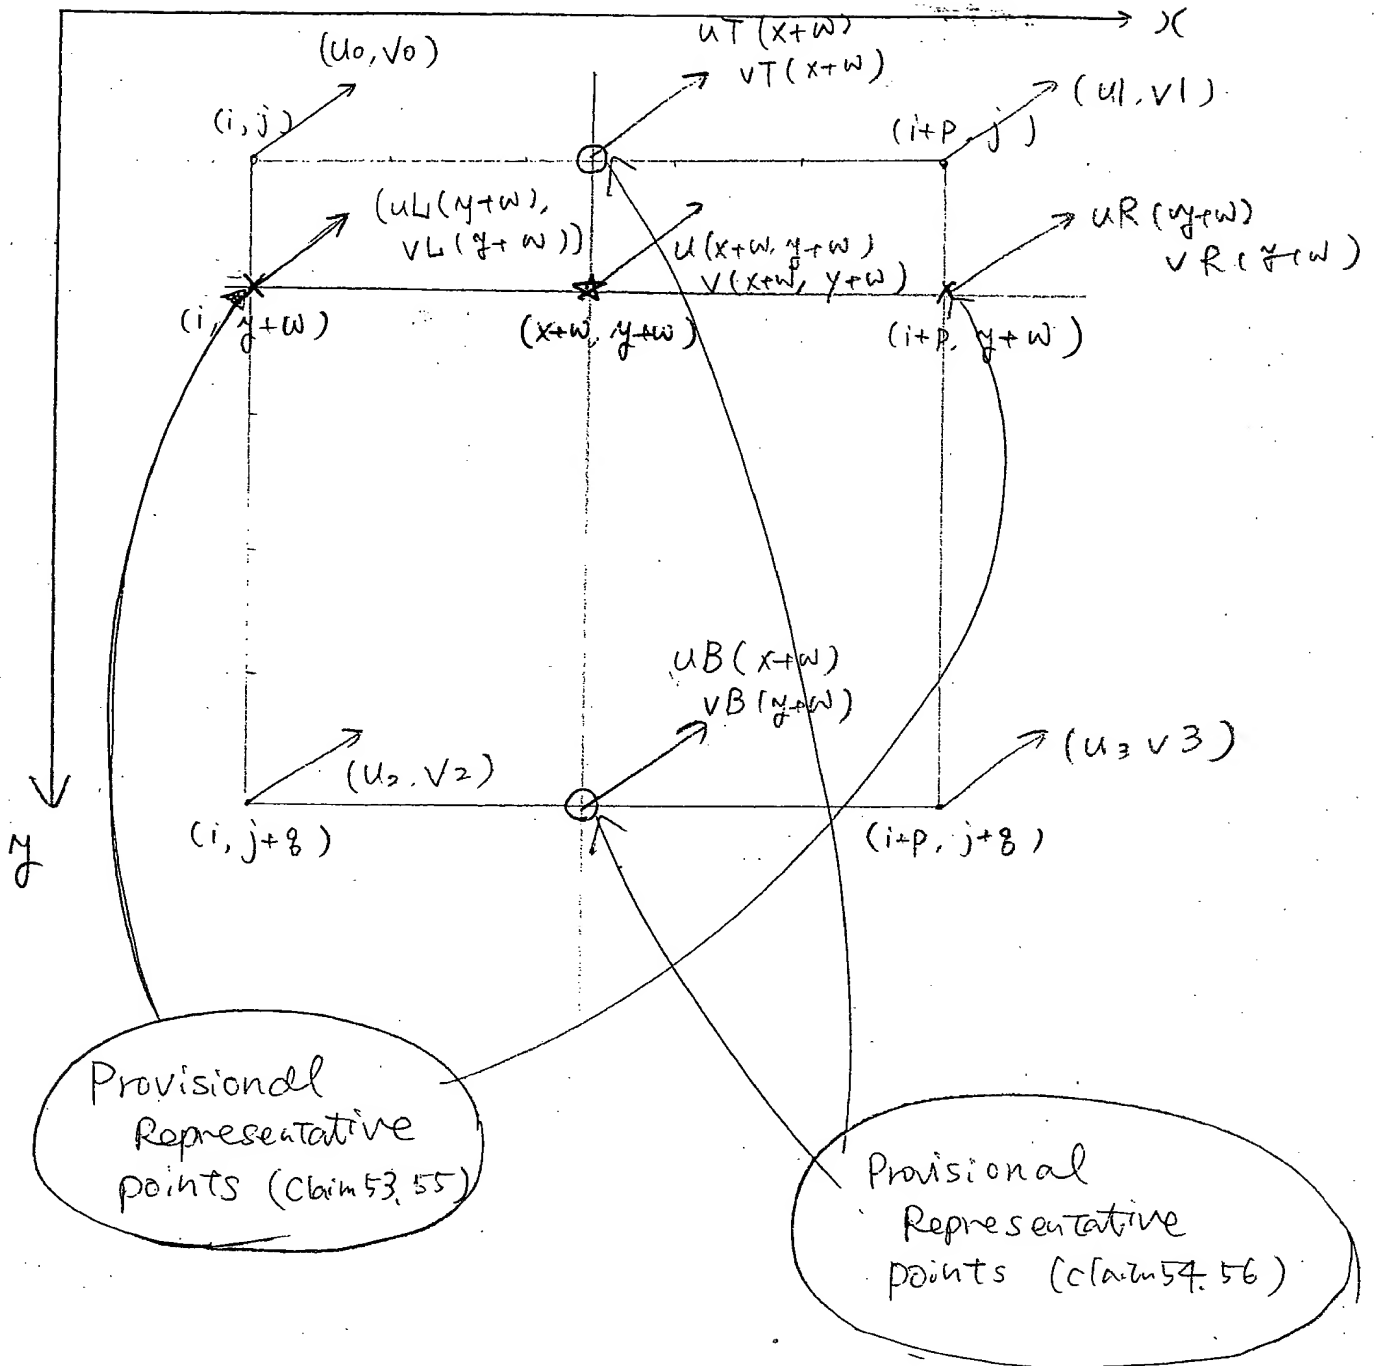 x
(u0, v0)
uT(x+w)
vT(x+w)
(u1, v1)
(i, j)
(i+p, j)
(uL(y+w),
vL(y+w))
u(x+w, y+w)
v(x+w, y+w)
uR(y+w)
vR(y+w)
(i, y+w)
(x+w, y+w)
(i+p, y+w)
uB(x+w)
vB(y+w)
(u2, v2)
(u3 v3)
(i, j+q)
(i+p, j+q)
y
Provisional
Representative
points (Claim 53, 55)
Provisional
Representative
points (claim 54, 56)